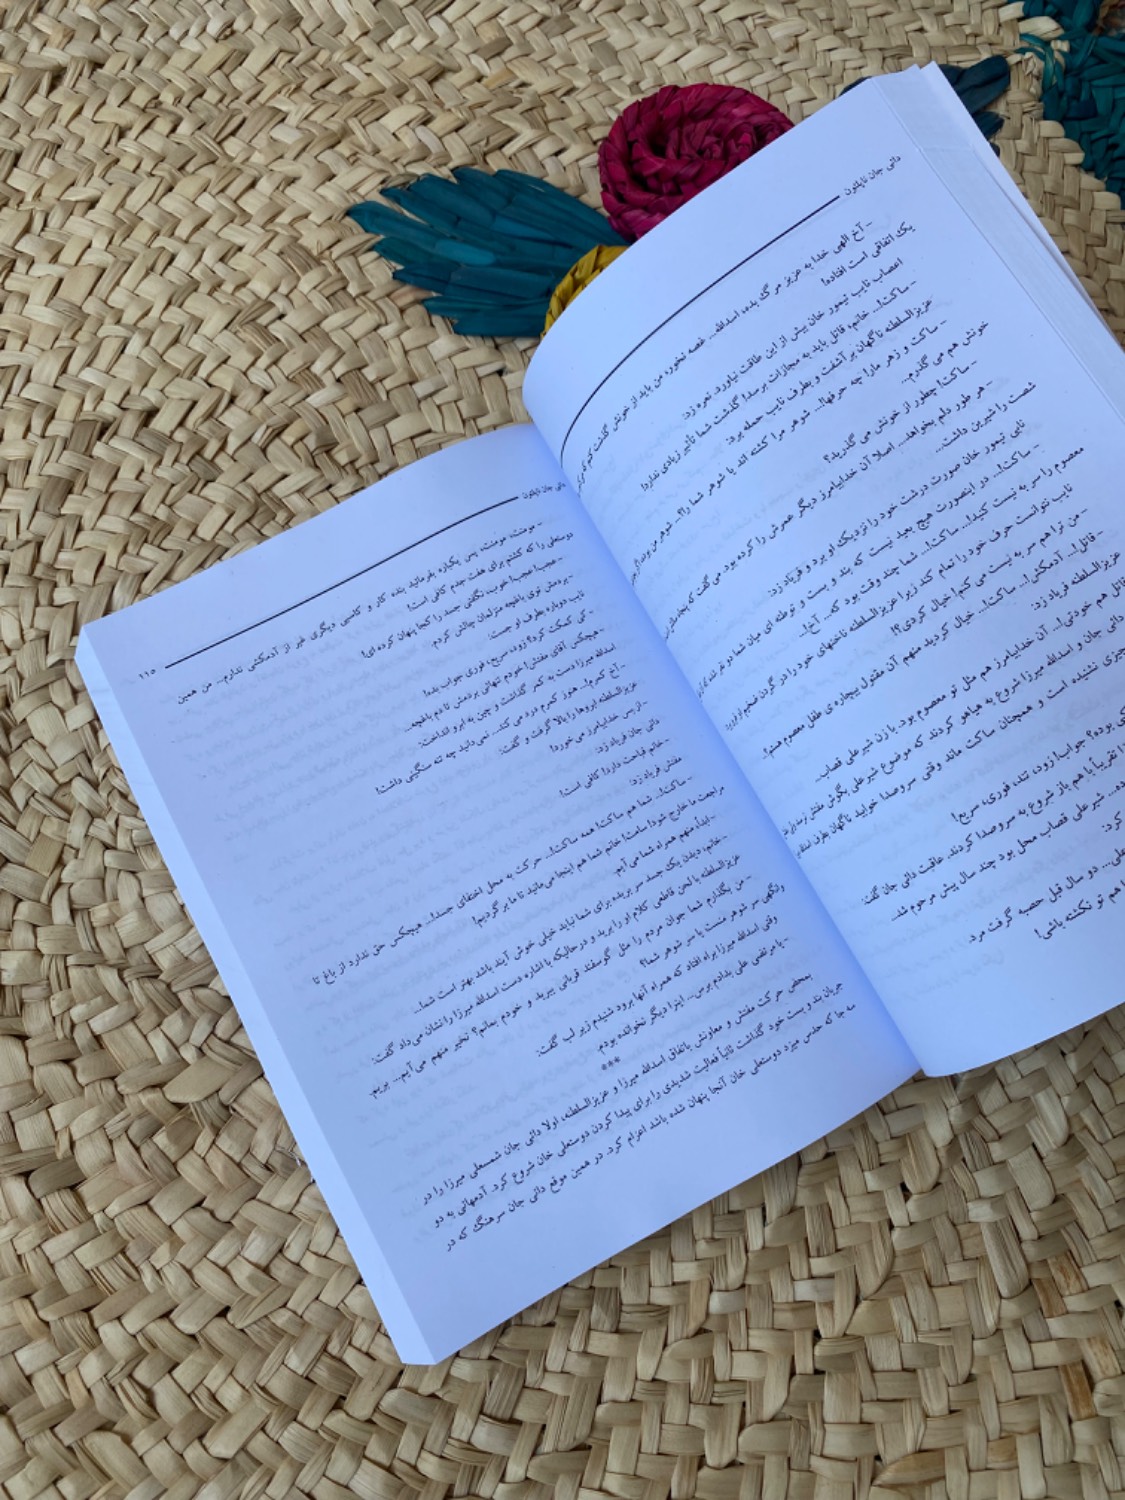 دائی جان ناپلئون
- آخ الهی خدا به عزیز مرگ بده، اسدالله... غصه نخور، من باید از خونش گذشت کنم که
یک اتفاقی است افتاده!
اعصاب نایب تیمور خان بیش از این طاقت نیاورد. نعره زد:
- ساکت!... خانم، قاتل باید به مجازات برسد! گذشت شما تأثیر زیادی ندارد!
عزیزالسلطنه ناگهان بر آشفت و بطرف نایب حمله برد:
- ساکت و زهر مار! چه حرفها!... شوهر مرا کشته اند یا شوهر شما را؟... شوهر من بوده
خونش هم می گذرم...
- ساکت! چطور از خونش می گذرید؟
- هر طور دلم بخواهد... اصلا آن خدابیامرز دیگر عمرش را کرده بود. می گفت که پنجاه
شصت را شیرین داشت...
نایب تیمور خان صورت درشت خود را نزدیک او برد و فریاد زد:
- ساکت!... در اینصورت هیچ بعید نیست که بند و بست و توطئه ای میان شما دو نفر
معصوم را سر به نیست کنید!... ساکت!... شما چند وقت بود که... آخ!...
نایب نتوانست حرف خود را تمام کند زیرا عزیزالسلطنه ناخنهای خود را در گردن ضخیم او
- من ترا هم سر به نیست می کنم! خیال کردی؟!
- قاتل!... آدمکش!... ساکت!... خیال کردید منهم آن مقتول بیچاره ی طفل معصوم هستم؟
عزیزالسلطنه فریاد زد:
قاتل هم خودتی!... آن خدابیامرز هم مثل تو معصوم بود. با زن شیرعلی قصاب..
دائی جان و اسدالله میرزا شروع به هیاهو کردند که موضوع شیرعلی بگوش مفتش نرسد
چیزی نشنیده است و همچنان ساکت ماند وقتی سروصدا خوابید ناگهان بطرف
کی بوده؟ جواب! زود، تند، فوری، سریع!
تقریباً با هم باز شروع به سروصدا کردند. عاقبت دائی جان گفت:
شیرعلی قصاب محل بود چند سال پیش مرحوم شد..
کرد:
دو سال قبل حصبه گرفت مرد.
هم تو نکشته باشی!
دائی جان ناپلئون
۱۱۵
- مومنت، مومنت، پس یکباره بفرمائید بنده کار و کاسبی دیگری غیر از آدمکشی ندارم... من همین
دوستعلی را که کشتم برای هفت جدم کافی است!
- عجب! عجب! خوب، نگفتی جسد را کجا پنهان کرده ای!
- بردمش توی باغچه منزلمان چالش کردم.
نایب دوباره بطرف او جست:
- کی کمکت کرد؟ زود، سریع، فوری جواب بده!
- هیچکس آقای مفتش! خودم تنهائی بردمش تا دم باغچه...
اسدالله میرزا دست به کمر گذاشت و چین به ابرو انداخت:
- آخ کمرم!... هنوز کمرم درد می کند... نمی دانید چه تنه سنگینی داشت!
عزیزالسلطنه ابروها را بالا گرفت و گفت:
- از بس خدابیامرز می خورد!
دائی جان فریاد زد:
- خانم قباحت دارد! کافی است!
مفتش فریاد زد:
- ساکت!... شما هم ساکت! همه ساکت!... حرکت به محل اختفای جسد!... هیچکس حق ندارد از باغ تا
مراجعت ما خارج شود! سامت! خانم شما هم اینجا می مانید تا ما برگردیم!
- ابداً، منهم همراه شما می آیم.
- خانم، دیدن یک جسد سر بریده برای شما نباید خیلی خوش آیند باشد بهتر است شما...
عزیزالسلطنه با لحن قاطعی کلام او را برید و در حالیکه با اشاره دست اسدالله میرزا را نشان می داد گفت:
- من بگذارم شما جوان مردم را مثل گوسفند قربانی ببرید و خودم بمانم؟ نخیر منهم می آیم... بریم.
وانگهی سر شوهر منست یا سر شوهر شما؟
وقتی اسدالله میرزا براه افتاد که همراه آنها برود شنیدم زیر لب گفت:
- یا مرتضی علی بدادم برس... اینرا دیگر نخوانده بودم.
***
بمحض حرکت مفتش و معاونش باتفاق اسدالله میرزا و عزیزالسلطنه، اولا دائی جان شمسعلی میرزا را در
جریان بند و بست خود گذاشت ثانیاً فعالیت شدیدی را برای پیدا کردن دوستعلی خان شروع کرد. آدمهائی به دو
سه جا که حدس میزد دوستعلی خان آنجا پنهان شده باشد اعزام کرد. در همین موقع دائی جان سرهنگ که در